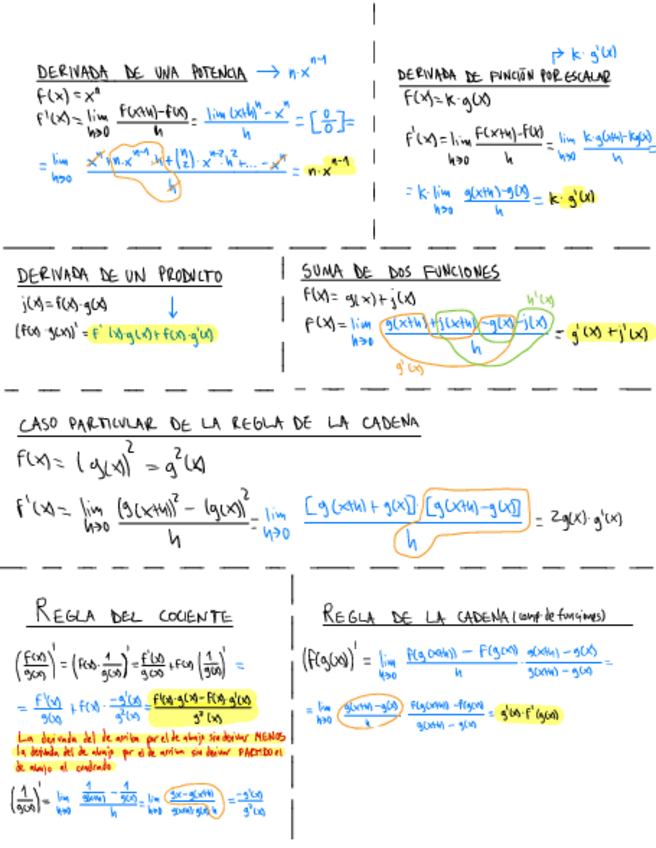 DERIVADA DE UNA POTENCIA → n·x^(n-1)
f(x) = x^n
f'(x) = lim h→0 (f(x+h)-f(x))/h = (lim (x+h)^n - x^n)/h = [0/0] =
= lim h→0 (x^n + n·x^(n-1)·h + (n 2)·x^(n-2)·h^2 + ... - x^n)/h = n·x^(n-1)
→ k·g'(x)
DERIVADA DE FUNCIÓN POR ESCALAR
f(x) = k·g(x)
f'(x) = lim h→0 (f(x+h)-f(x))/h = lim h→0 (k·g(x+h)-kg(x))/h =
= k·lim h→0 (g(x+h)-g(x))/h = k·g'(x)
DERIVADA DE UN PRODUCTO
j(x) = f(x)·g(x)
↓
(f(x)·g(x))' = f'(x)·g(x)+f(x)·g'(x)
SUMA DE DOS FUNCIONES
f(x) = g(x)+j(x)
h'(x)
f'(x) = lim h→0 (g(x+h)+j(x+h)-g(x)-j(x))/h = g'(x)+j'(x)
g'(x)
CASO PARTICULAR DE LA REGLA DE LA CADENA
f(x) = (g(x))^2 = g^2(x)
f'(x) = lim h→0 ((g(x+h))^2 - (g(x))^2)/h = lim h→0 ([g(x+h)+g(x)]·[g(x+h)-g(x)])/h = 2g(x)·g'(x)
REGLA DEL COCIENTE
(f(x)/g(x))' = (f(x)·1/g(x))' = f'(x)/g(x) + f(x)·(1/g(x))' =
= f'(x)/g(x) + f(x)·(-g'(x))/g^2(x) = (f'(x)·g(x)-f(x)·g'(x))/g^2(x)
La derivada del de arriba por el de abajo sin derivar MENOS
la derivada del de abajo por el de arriba sin derivar PARTIDO el
de abajo al cuadrado
(1/g(x))' = lim h→0 (1/g(x+h) - 1/g(x))/h = lim h→0 (gx-g(x+h))/(g(x+h)·g(x)·h) = -g'(x)/g^2(x)
REGLA DE LA CADENA (comp. de funciones)
(f(g(x)))' = lim h→0 (f(g(x+h)) - f(g(x)))/h · (g(x+h)-g(x))/(g(x+h)-g(x)) =
= lim h→0 (g(x+h)-g(x))/h · (f(g(x+h))-f(g(x)))/(g(x+h)-g(x)) = g'(x)·f'(g(x))